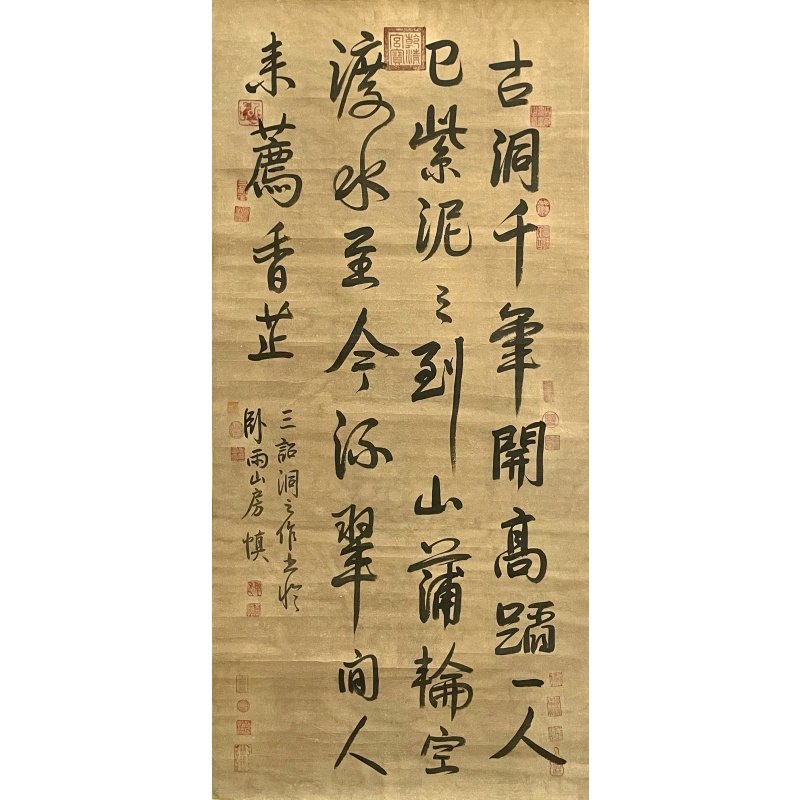 古洞千年開高蹈一人
已紫泥三到山蒲輪空
渡水至今深翠間人
来薦香芷
三詔洞之作書於
卧雨山房 慎
乾清宮寶